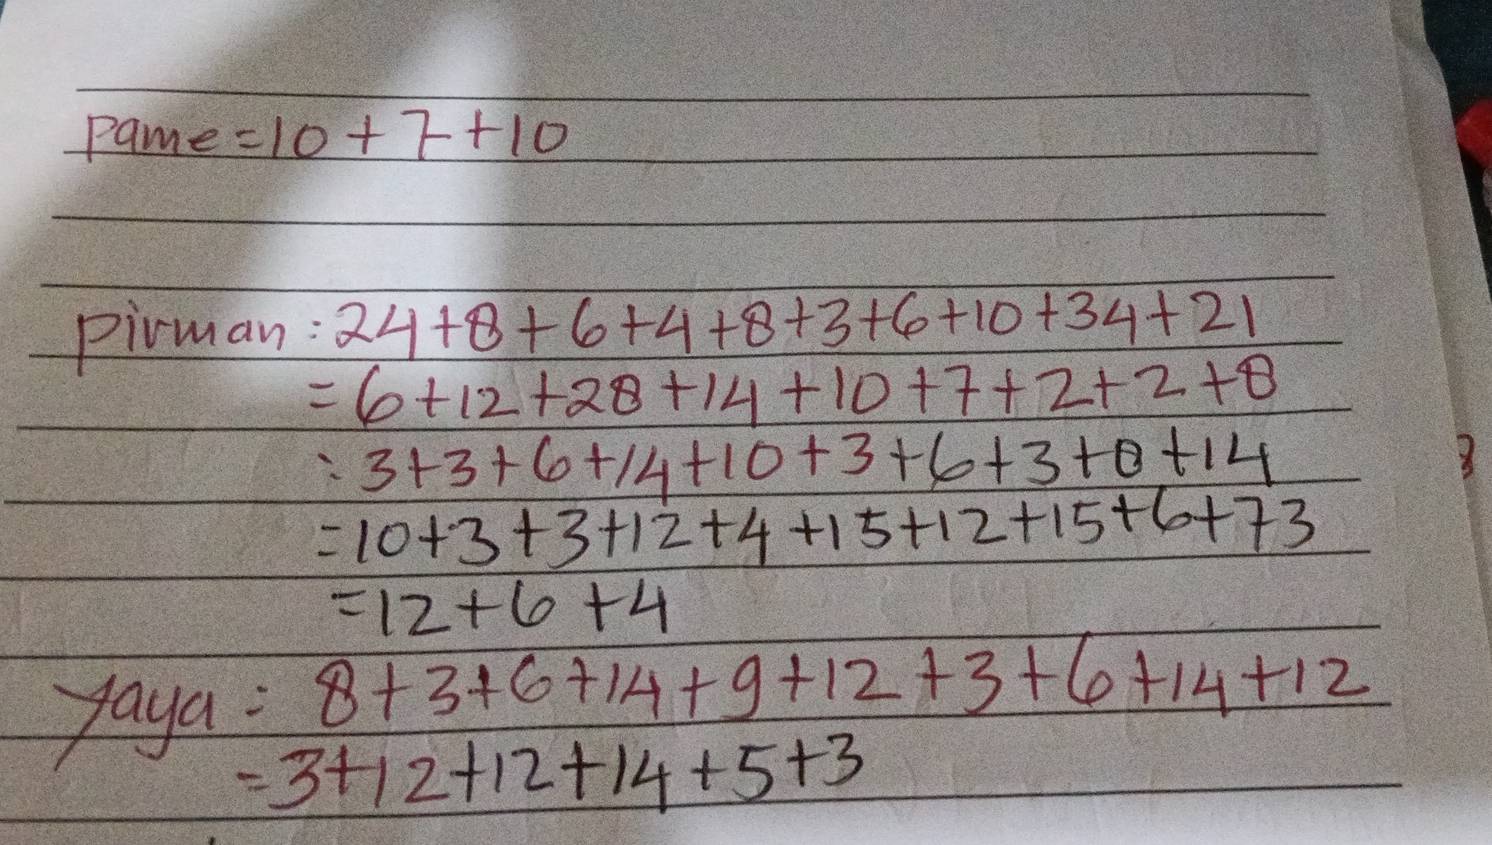 Pame=10+7+10
pirman:24+8+6+4+8+3+6+10+34+21
=6+12+28+14+10+7+2+2+8
:3+3+6+14+10+3+6+3+8+14
=10+3+3+12+4+15+12+15+6+73
=12+6+4
Yaya= 8+3+6+14+9+12+3+6+14+12
=3+12+12+14+5+3